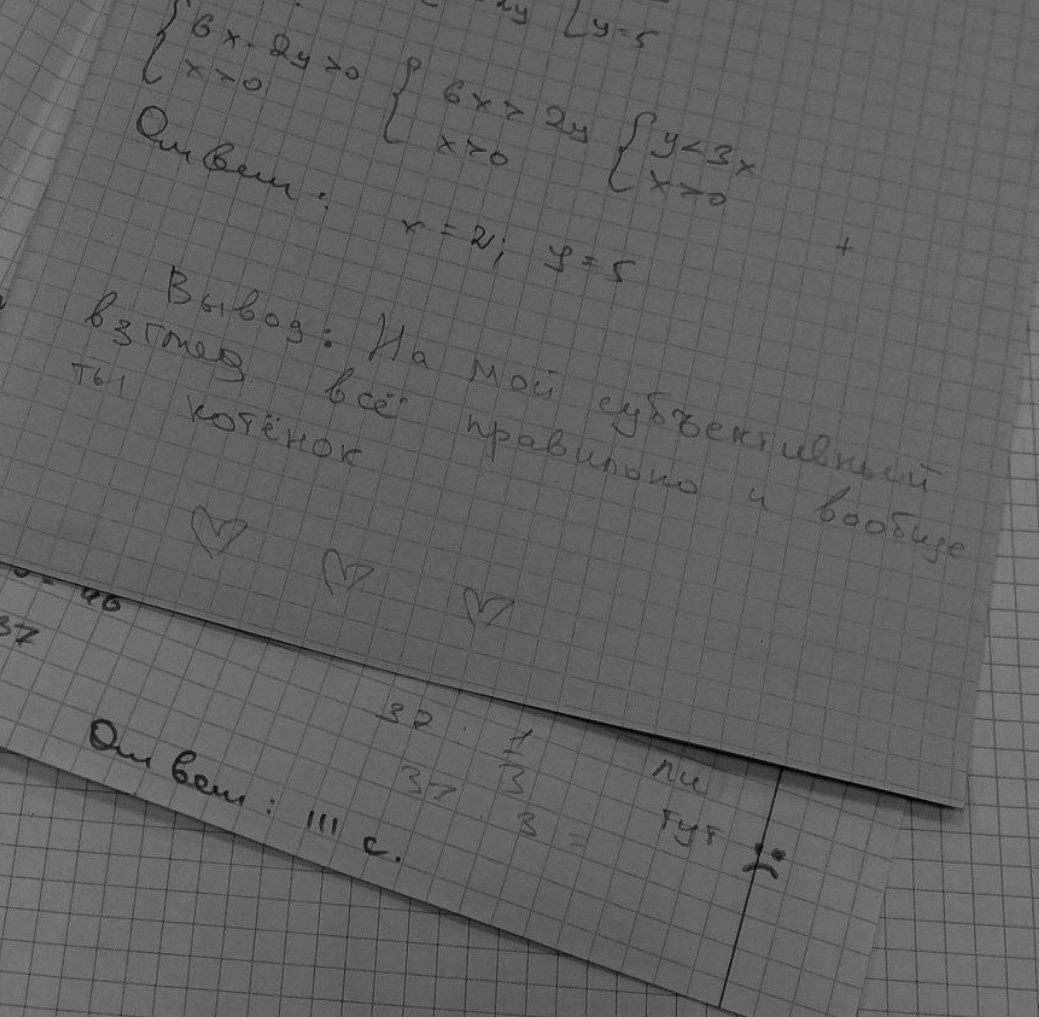 2y { y=5
{ 6x-2y>0 { 6x>2y { y<3x
x>0 x>0 x>0
Ответ: x=2; y=5 +
Вывод: На мой субъективный
взгляд всё правильно и вообще
ты котёнок
♡ ♡ ♡
46
37
37 · 1/3 ли
37 · 3 = тут
Ответ: 111 с.